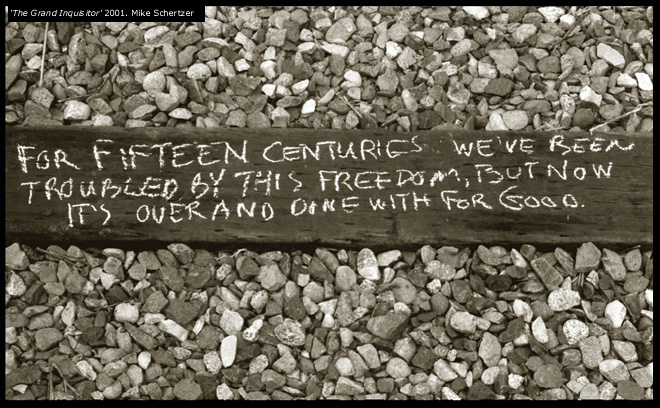 'The Grand Inquisitor' 2001. Mike Schertzer
FOR FIFTEEN CENTURIES WE'VE BEEN
TROUBLED BY THIS FREEDOM, BUT NOW
IT'S OVER AND DONE WITH FOR GOOD.